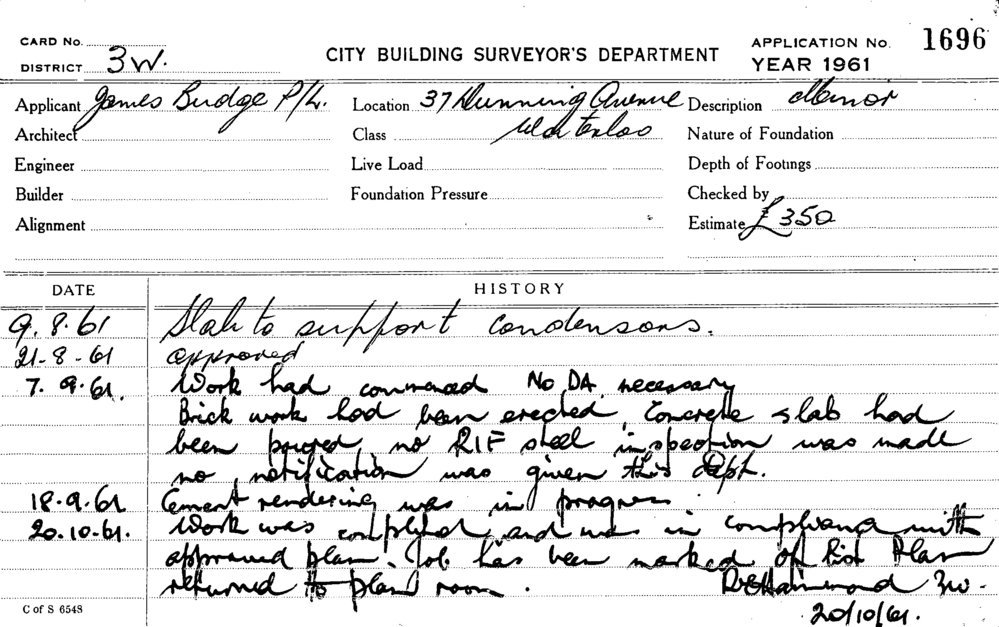 CARD No.
DISTRICT 3W.
CITY BUILDING SURVEYOR'S DEPARTMENT
APPLICATION No. 1696
YEAR 1961
Applicant James Budge P/L. Location 37 Dunning Avenue Description Minor
Architect Class Waterloo Nature of Foundation
Engineer Live Load Depth of Footings
Builder Foundation Pressure Checked by
Alignment Estimate £350
DATE HISTORY
9.8.61 Slab to support condensors.
21-8-61 approved
7.9.61. Work had commenced No DA. necessary
Brick work had been erected, Concrete slab had
been poured, no R/F steel inspection was made
no notification was given this dept.
18.9.61 Cement rendering was in progress.
20.10.61. Work was completed and was in compliance with
approved plan. Job has been marked of list Plan
returned to plan room. Hammond 3W.
C of S 6548 20/10/61.